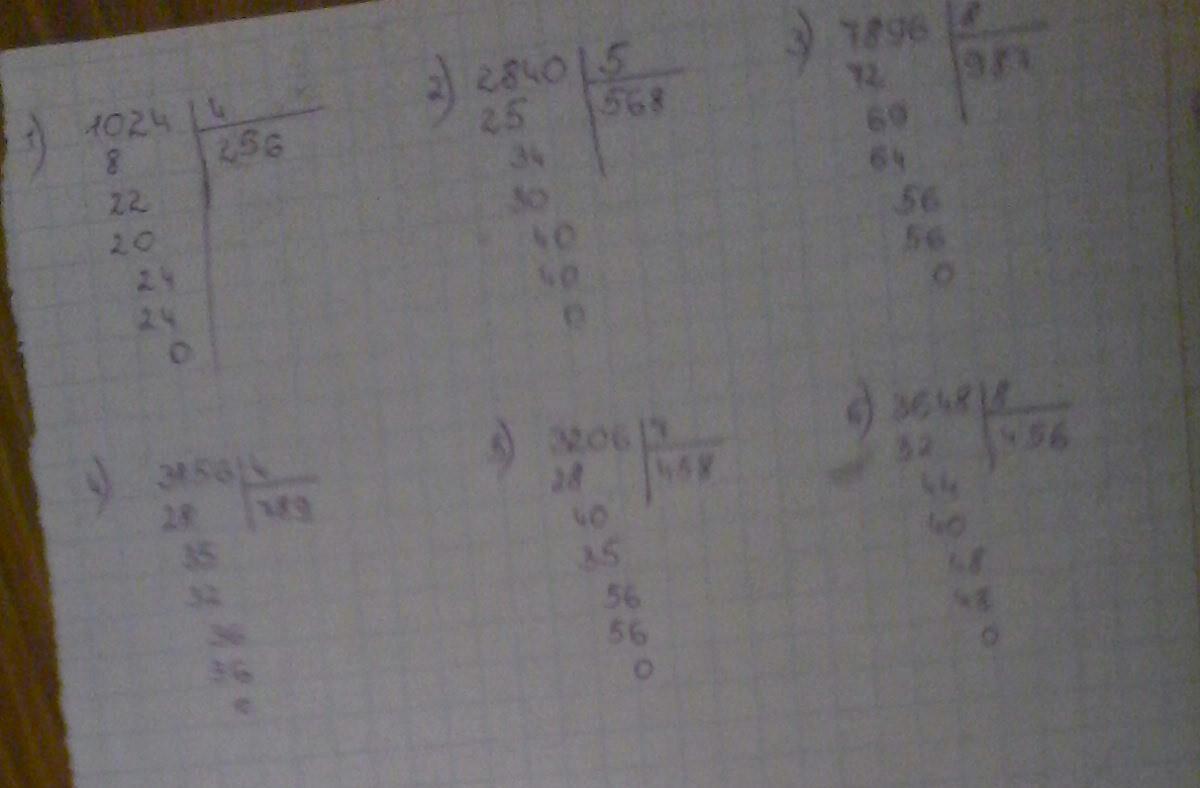 1) 1024 4
256
8
22
20
24
24
0
2) 2840 5
568
25
34
30
40
40
0
3) 7896 8
987
72
69
64
56
56
0
4) 3156 4
789
28
35
32
36
36
0
5) 3206 7
458
28
40
35
56
56
0
6) 3648 8
456
32
44
40
48
48
0